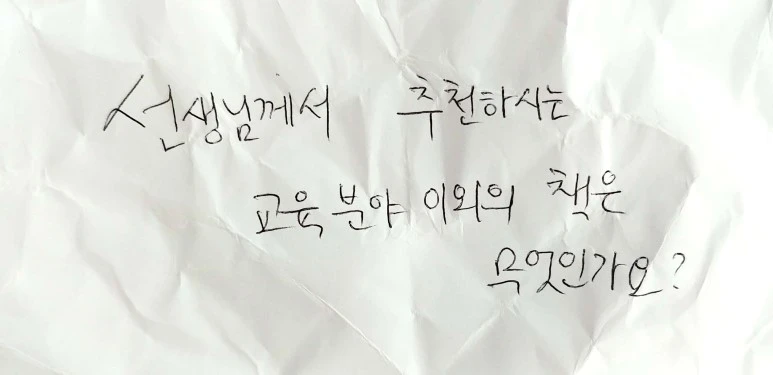 선생님께서 추천하시는
교육 분야 이외의 책은
무엇인가요?